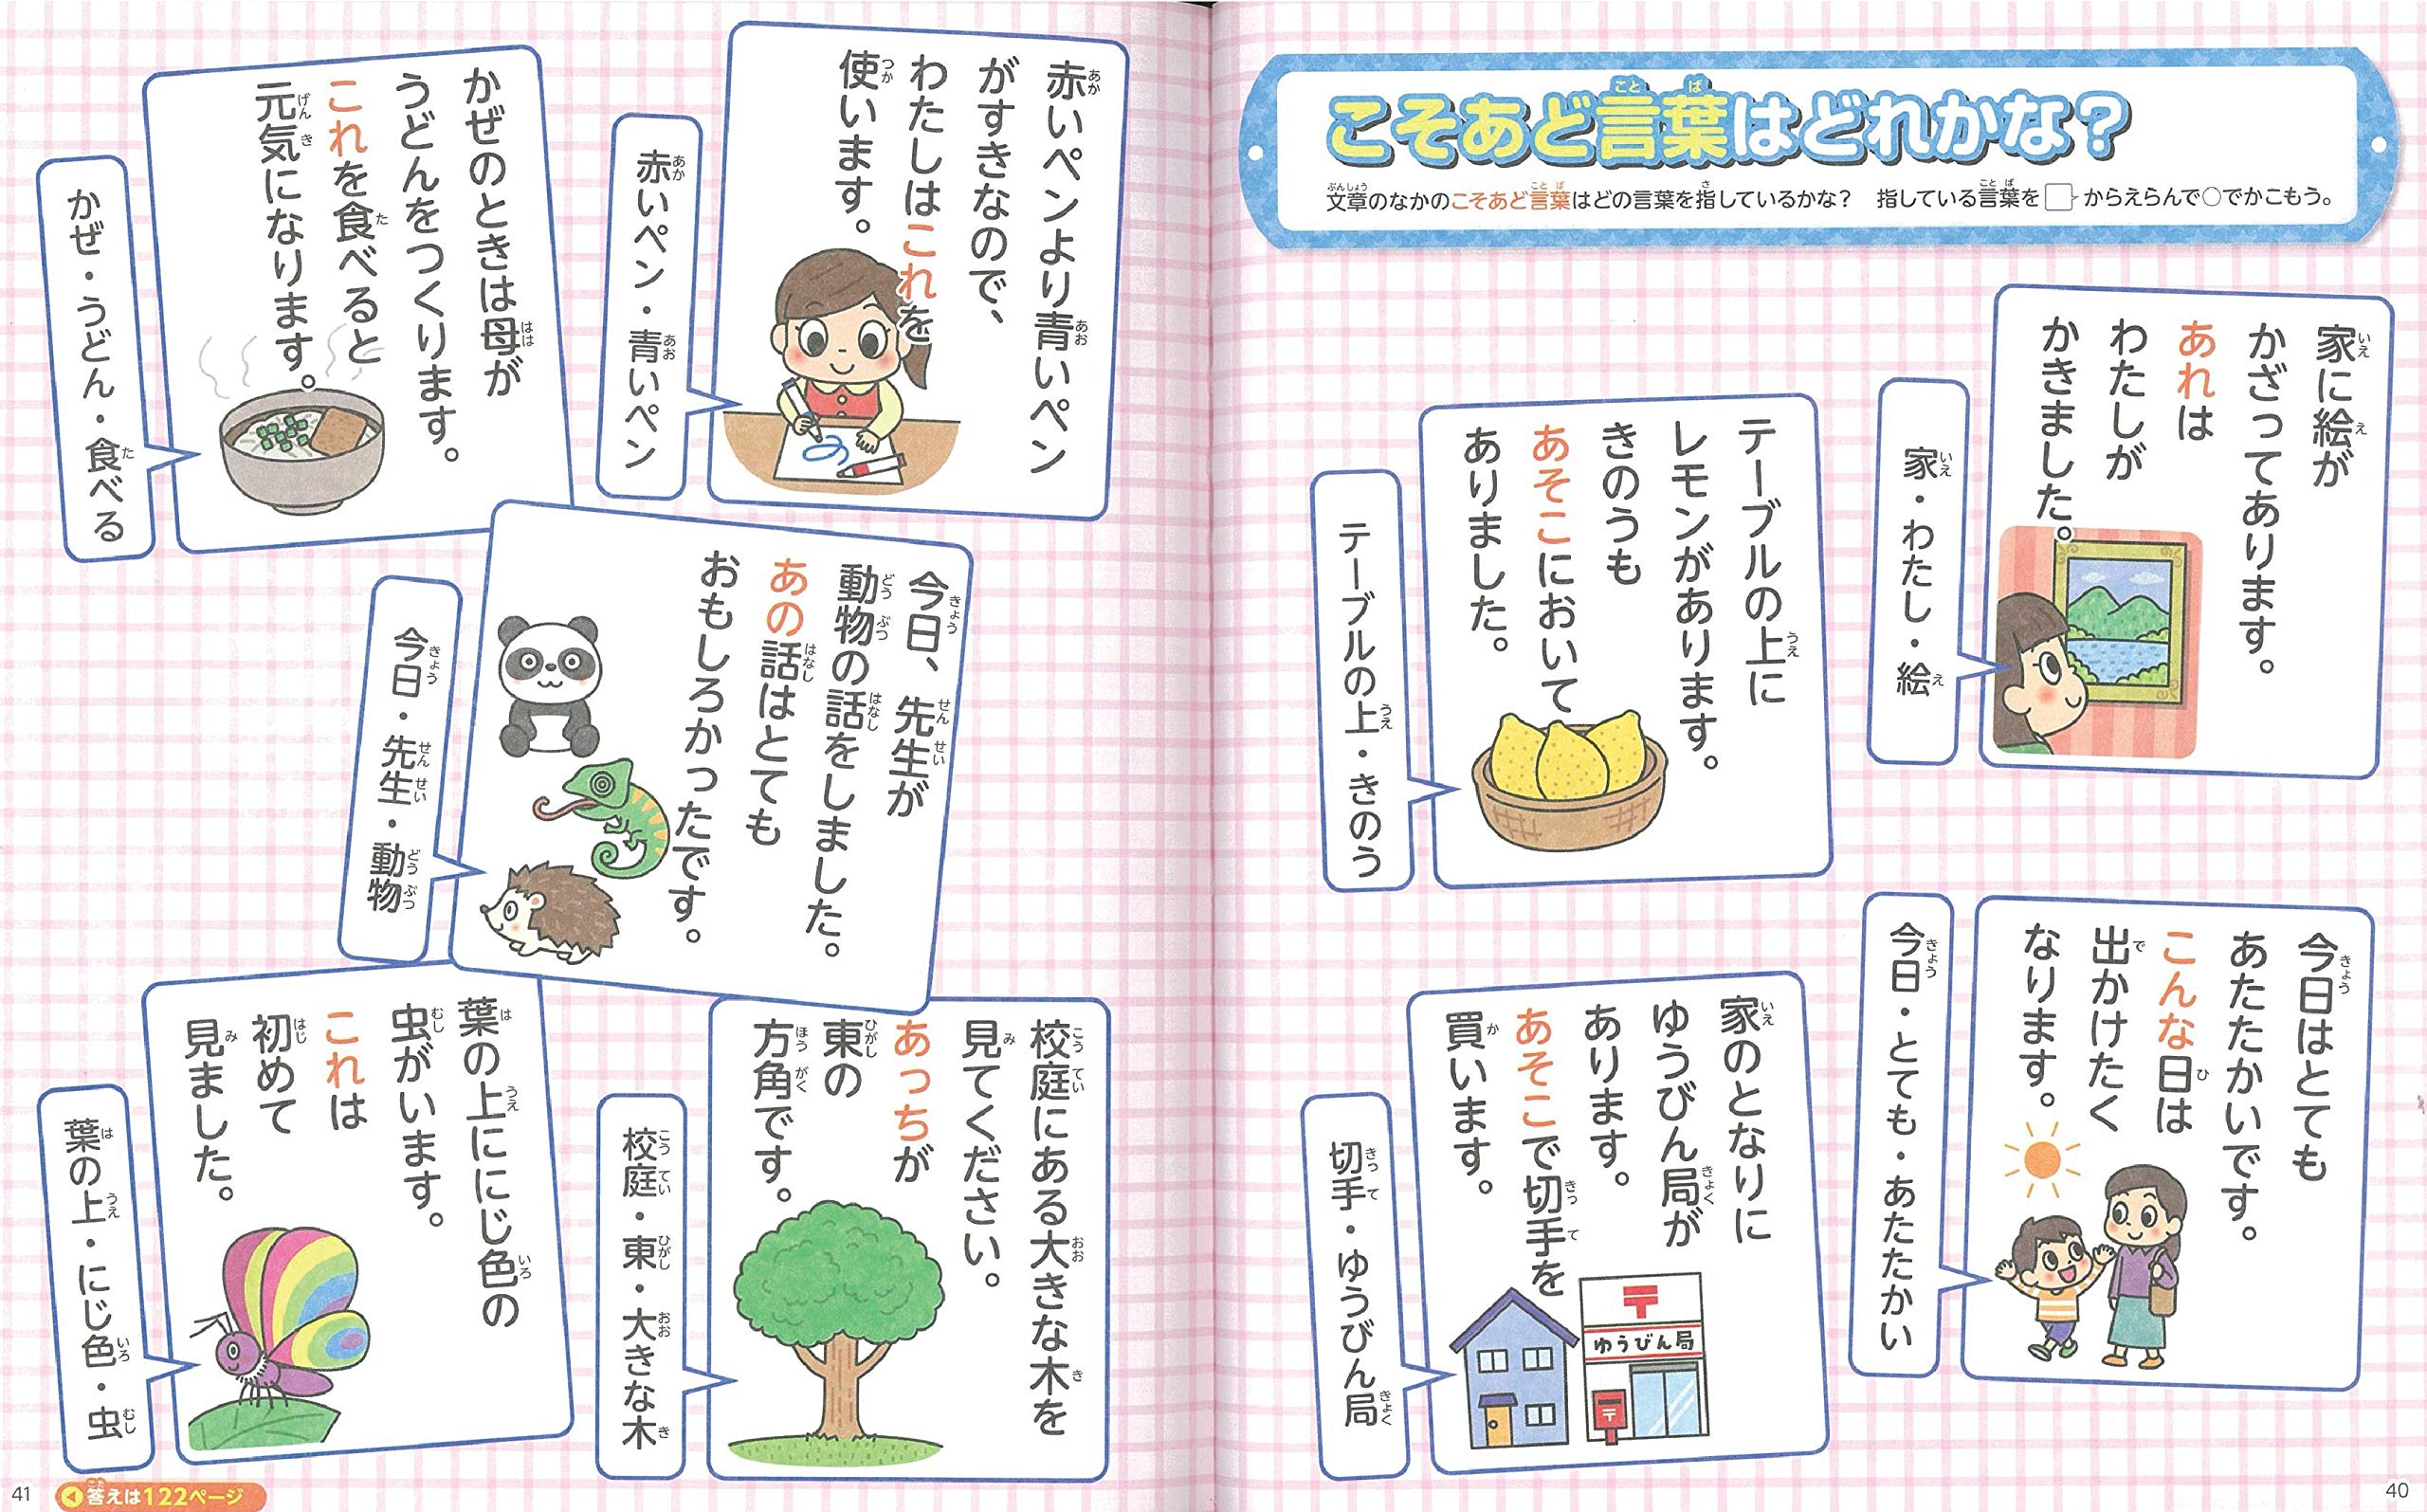 こそあど言葉はどれかな？
文章のなかのこそあど言葉はどの言葉を指しているかな？　指している言葉を□からえらんで○でかこもう。
家に絵が
かざってあります。
あれは
わたしが
かきました。
家・わたし・絵
テーブルの上に
レモンがあります。
きのうも
あそこにおいて
ありました。
テーブルの上・きのう
今日はとても
あたたかいです。
こんな日は
出かけたく
なります。
今日・とても・あたたかい
家のとなりに
ゆうびん局が
あります。
あそこで切手を
買います。
ゆうびん局
切手・ゆうびん局
40
赤いペンより青いペン
がすきなので、
わたしはこれを
使います。
赤いペン・青いペン
かぜのときは母が
うどんをつくります。
これを食べると
元気になります。
かぜ・うどん・食べる
今日、先生が
動物の話をしました。
あの話はとても
おもしろかったです。
今日・先生・動物
校庭にある大きな木を
見てください。
あっちが
東の
方角です。
校庭・東・大きな木
葉の上ににじ色の
虫がいます。
これは
初めて
見ました。
葉の上・にじ色・虫
41
答えは122ページ